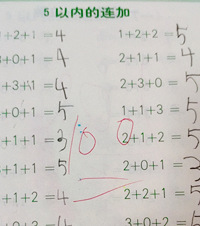 5 以内的连加
+2+1=4 1+2+2=5
+0+1=4 2+1+1=4
+3+1=4 2+3+0=5
+0+1=5 1+1+3=5
+1+1=3 2+1+2=5
+1+1=5 2+0+1=3
+1+2=4 2+2+1=5
3+0+2=5